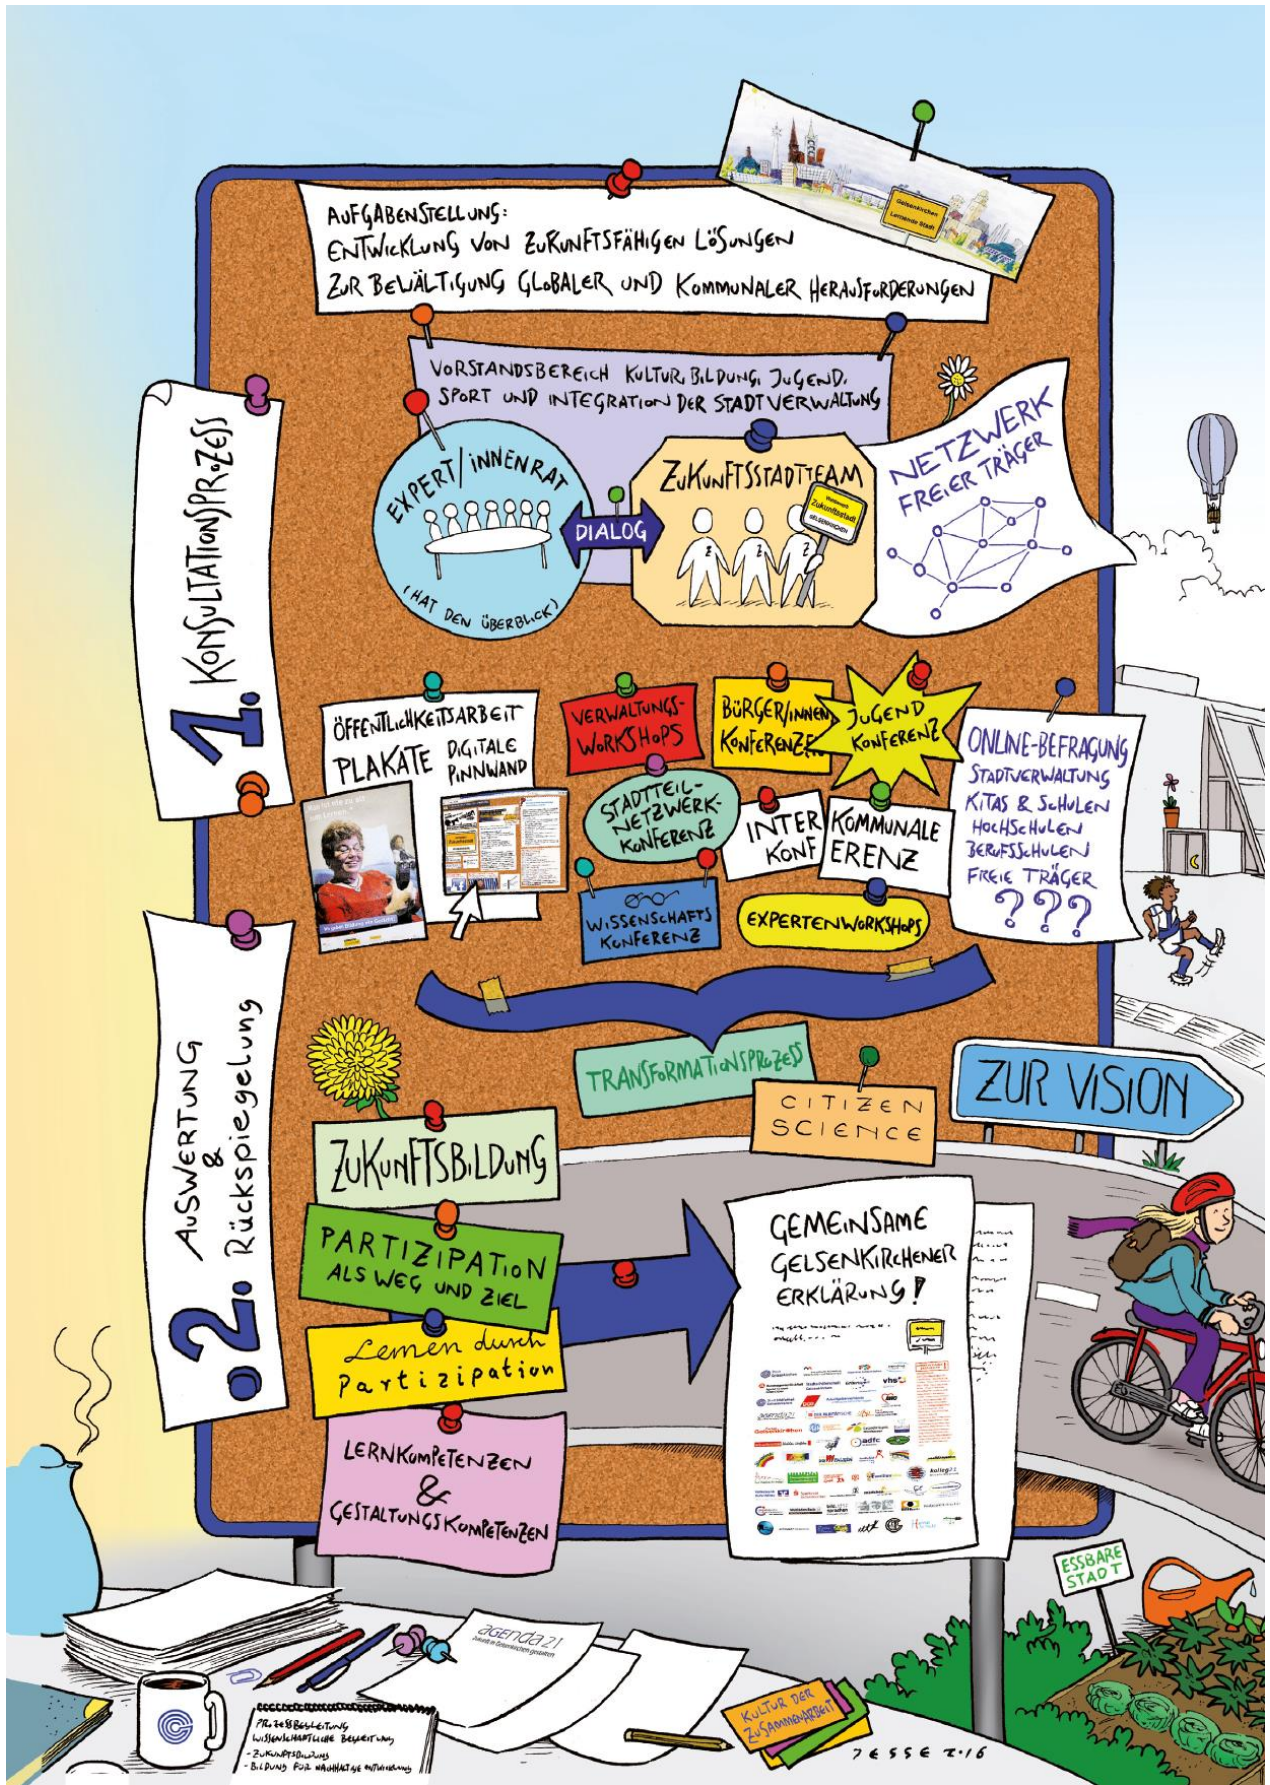 Gelsenkirchen
Lernende Stadt
AUFGABENSTELLUNG:
ENTWICKLUNG VON ZUKUNFTSFÄHIGEN LÖSUNGEN
ZUR BEWÄLTIGUNG GLOBALER UND KOMMUNALER HERAUSFORDERUNGEN
VORSTANDSBEREICH KULTUR, BILDUNG, JUGEND,
SPORT UND INTEGRATION DER STADTVERWALTUNG
1. KONSULTATIONSPROZESS
EXPERT/INNENRAT
(HAT DEN ÜBERBLICK)
DIALOG
ZUKUNFTSSTADTTEAM
Zukunftsstadt
GELSENKIRCHEN
Z Z Z
NETZWERK
FREIER TRÄGER
ÖFFENTLICHKEITSARBEIT
PLAKATE
DIGITALE
PINNWAND
VERWALTUNGS-
WORKSHOPS
BÜRGER/INNEN
KONFERENZEN
JUGEND
KONFERENZ
STADTTEIL-
NETZWERK-
KONFERENZ
INTER KOMMUNALE
KONF ERENZ
WISSENSCHAFTS
KONFERENZ
EXPERTENWORKSHOPS
ONLINE-BEFRAGUNG
STADTVERWALTUNG
KITAS & SCHULEN
HOCHSCHULEN
BERUFSSCHULEN
FREIE TRÄGER
???
2. AUSWERTUNG
&
Rückspiegelung
TRANSFORMATIONSPROZESS
CITIZEN
SCIENCE
ZUR VISION
ZUKUNFTSBILDUNG
PARTIZIPATION
ALS WEG UND ZIEL
Lernen durch
Partizipation
LERNKOMPETENZEN
&
GESTALTUNGSKOMPETENZEN
GEMEINSAME
GELSENKIRCHENER
ERKLÄRUNG!
vhs
adfc
kolleg21
ESSBARE
STADT
agenda21
Zukunft in Gelsenkirchen gestalten
PROZESSBEGLEITUNG
WISSENSCHAFTLICHE BEGLEITUNG
- ZUKUNFTSBILDUNG
- BILDUNG FÜR NACHHALTIGE ENTWICKLUNG
KULTUR DER
ZUSAMMENARBEIT
JESSE 2.16